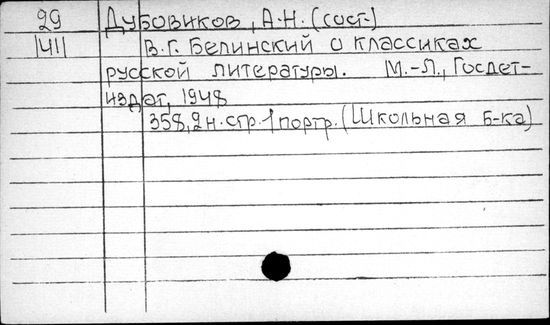 29 Дубовиков, А.Н. (сост.)
1411 В.Г. Белинский о классиках
русской литературы. М.-Л., Госдет-
издат, 1948
358, 2 н. стр. 1 портр. (Школьная б-ка)